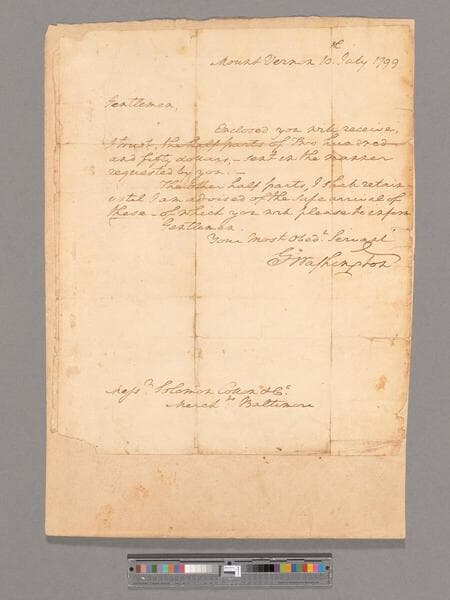 Mount Vernon 10th July 1799
Gentlemen,
Enclosed you will receive,
I trust, the half parts of two hundred
and fifty dollars,—sent in the manner
requested by you.—
The other half parts, I shall retain
until I am advised of the safe arrival of
these—of which you will please to inform
Gentlemen
Your Most Obedt Servant
Go Washington
Messrs Solomon Cotton & Co
Merchts Baltimore